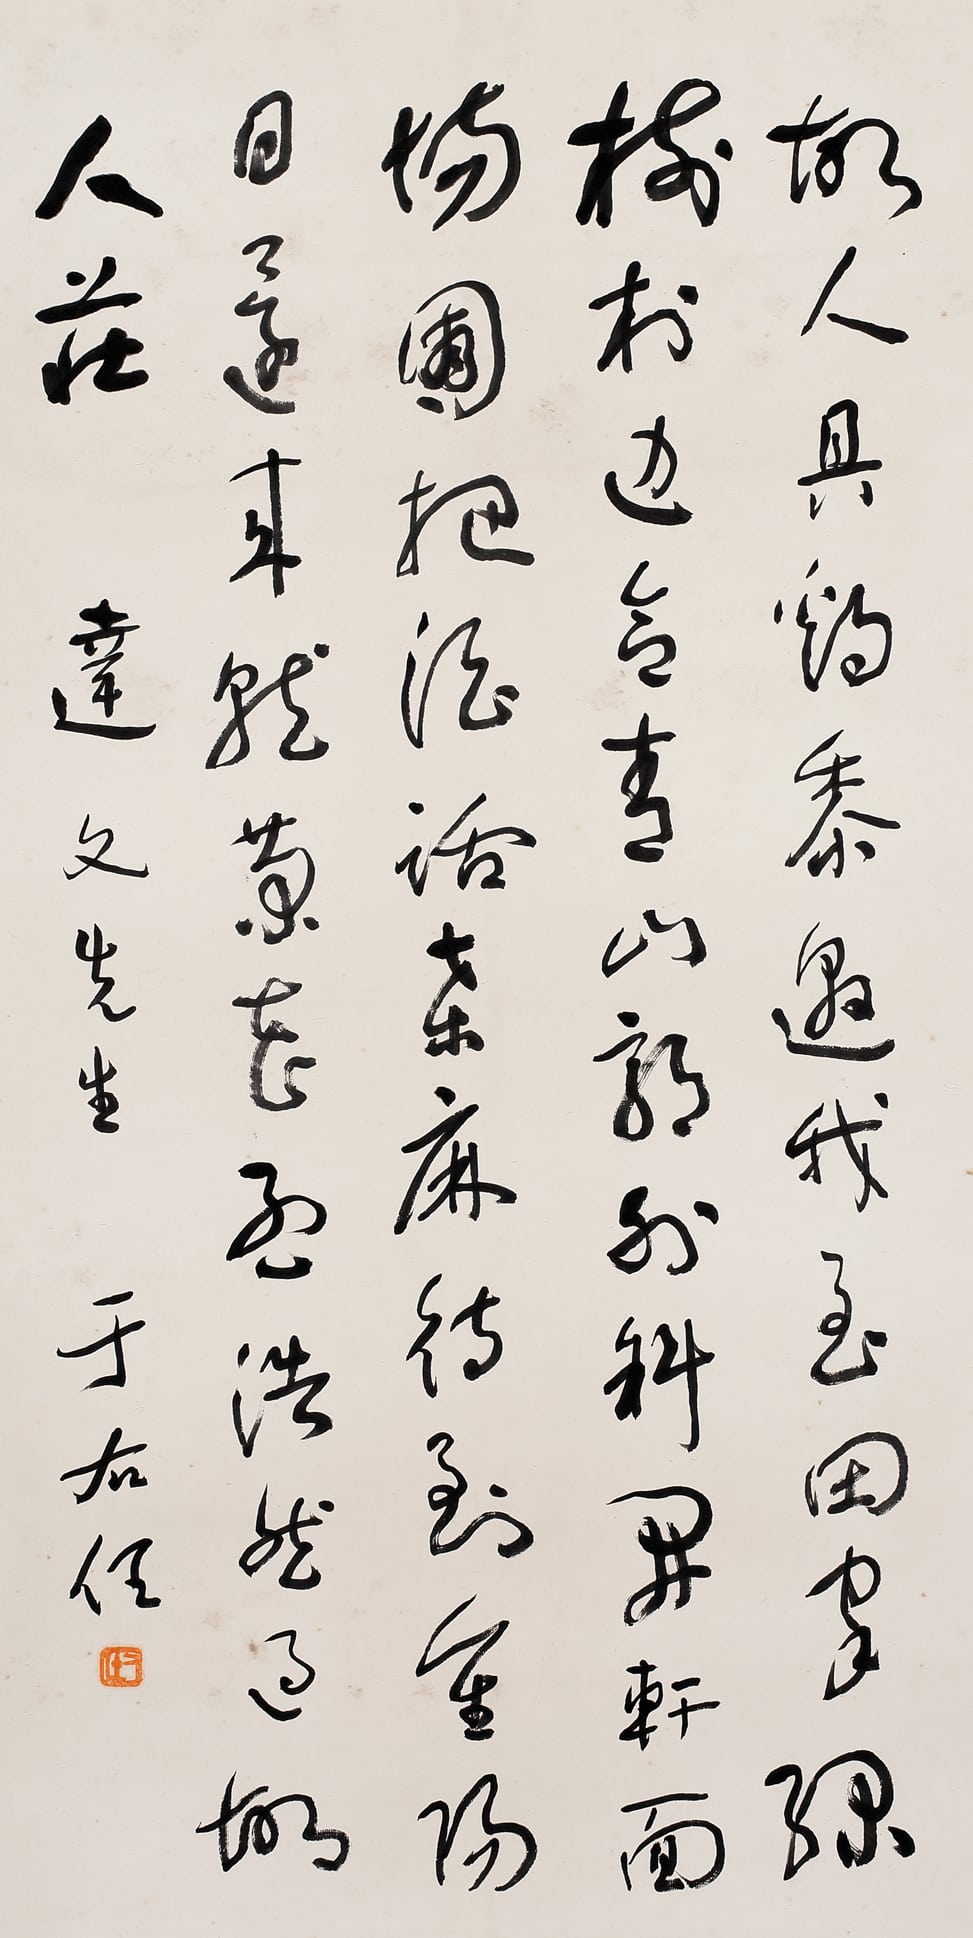 故人具鷄黍邀我至田家綠
樹村边合青山郭外斜開軒面
場圃把酒話桑麻待到重陽
日還來就菊花孟浩然過故
人莊 達文先生 于右任